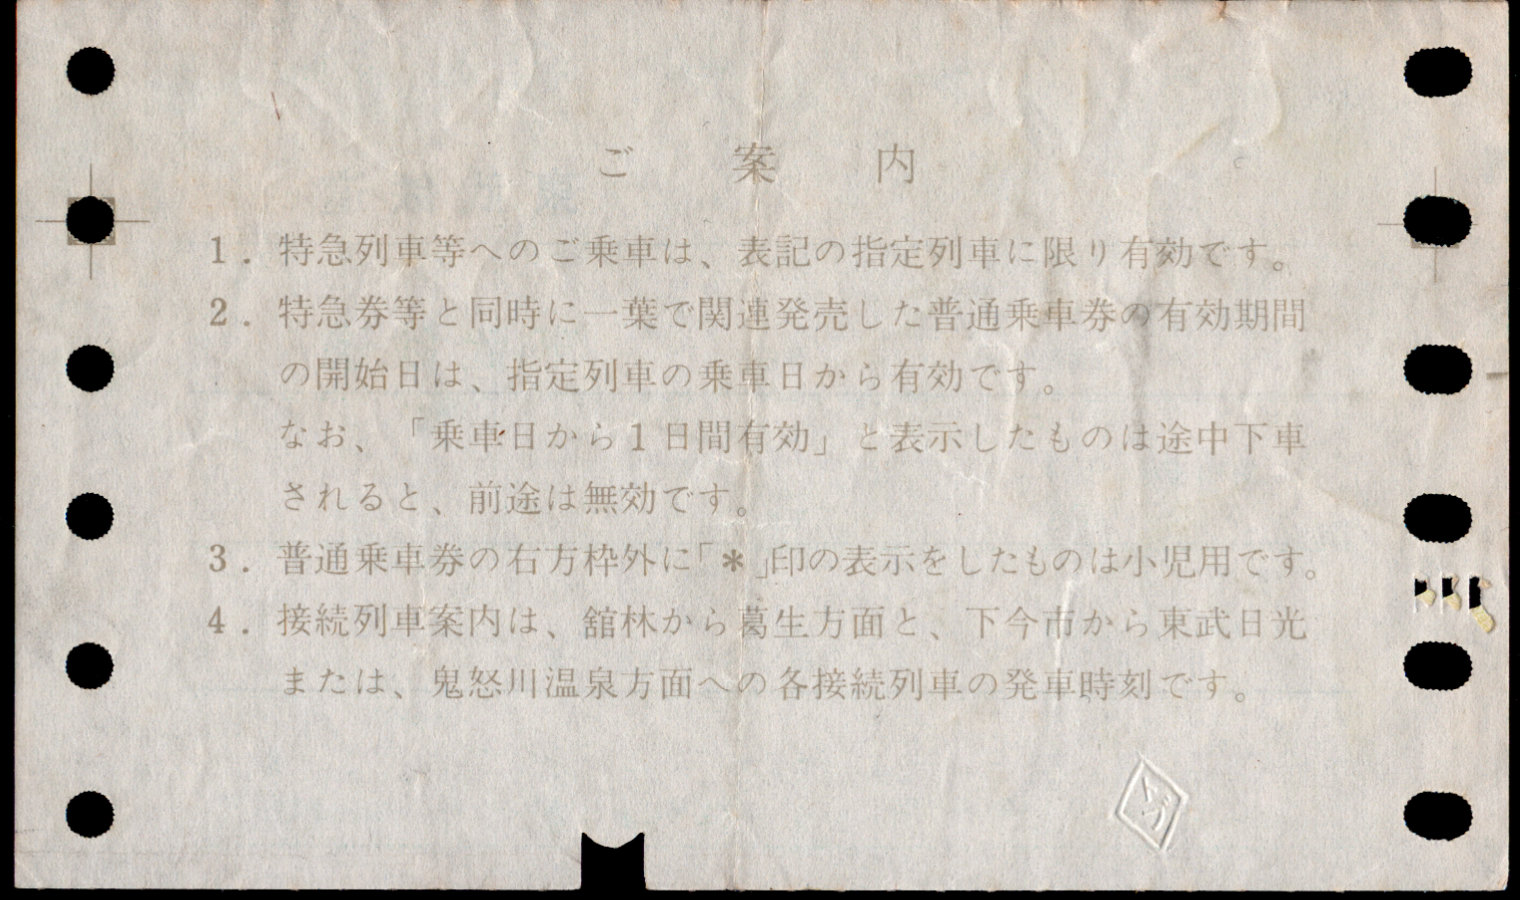 ご案内
1. 特急列車等へのご乗車は、表記の指定列車に限り有効です。
2. 特急券等と同時に一葉で関連発売した普通乗車券の有効期間
の開始日は、指定列車の乗車日から有効です。
なお、「乗車日から1日間有効」と表示したものは途中下車
されると、前途は無効です。
3. 普通乗車券の右方枠外に「*」印の表示をしたものは小児用です。
4. 接続列車案内は、舘林から葛生方面と、下今市から東武日光
または、鬼怒川温泉方面への各接続列車の発車時刻です。